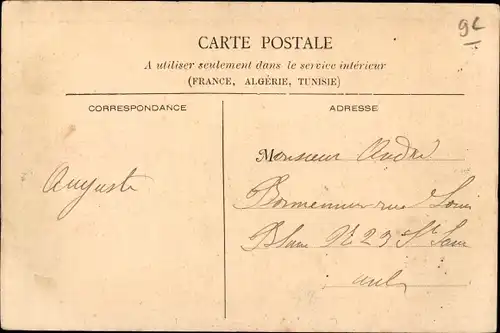 9L
CARTE POSTALE
A utiliser seulement dans le service intérieur
(FRANCE, ALGÉRIE, TUNISIE)
CORRESPONDANCE
ADRESSE
Monsieur André
rue Louis
Blanc N 23 St
Auguste